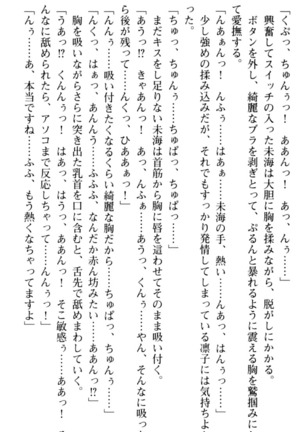 「くぷっ、ちゅぅんっ！　ああんっ！　あっ、んぅっ」
興奮してスイッチの入った未海は大胆に胸を揉みながら、脱がしにかかる。
ボタンを外し、綺麗なブラを剥ぎとって、ぷるんと暴れるように震える胸を鷲掴みに
して愛撫する。
「んぁっ、んぅんっ！　んふぅっ……はぁっ……未海の手、熱い……んあっ、はんぅっ！」
少し強めの揉み込みだが、それでもすっかり発情してしまっている凛子には気持ちよ
かった。
「ちゅっ、ちゅんぅっ……ちゅぱっ、ちゅっ」
まだキスをし足りない未海は首筋から胸に唇を這わせてそのまま吸い付く。
「あうっ⁉　きゃあんっ！　あっ、んふぁ……あうっ、くんぅっ……やん、そんなに吸った
ら後が残って……くくっ、ひああぁっ！」
「んちゅぅっ……吸い付きたくなるくらい綺麗な胸だから……ちゅぱっ、ちゅんぅっ」
「んくっ、はぁっ、あんんぅ……ふふふ、なんだか赤ん坊みたい……ああんっ⁉」
胸を吸いながらさらに突き出た乳首を口に含むと、舌先で舐めまわしていく。
「うあっ？　くんんぅっ！　はあっ、はうっ、ああんっ！　そこ敏感ぅ……ああっ！　そ
んなに舐められたら、アソコまで反応しちゃって……んんぅっ！」
「んぅっ……あ、本当ですね……ふふ、もう熱くなっちゃってますよ」